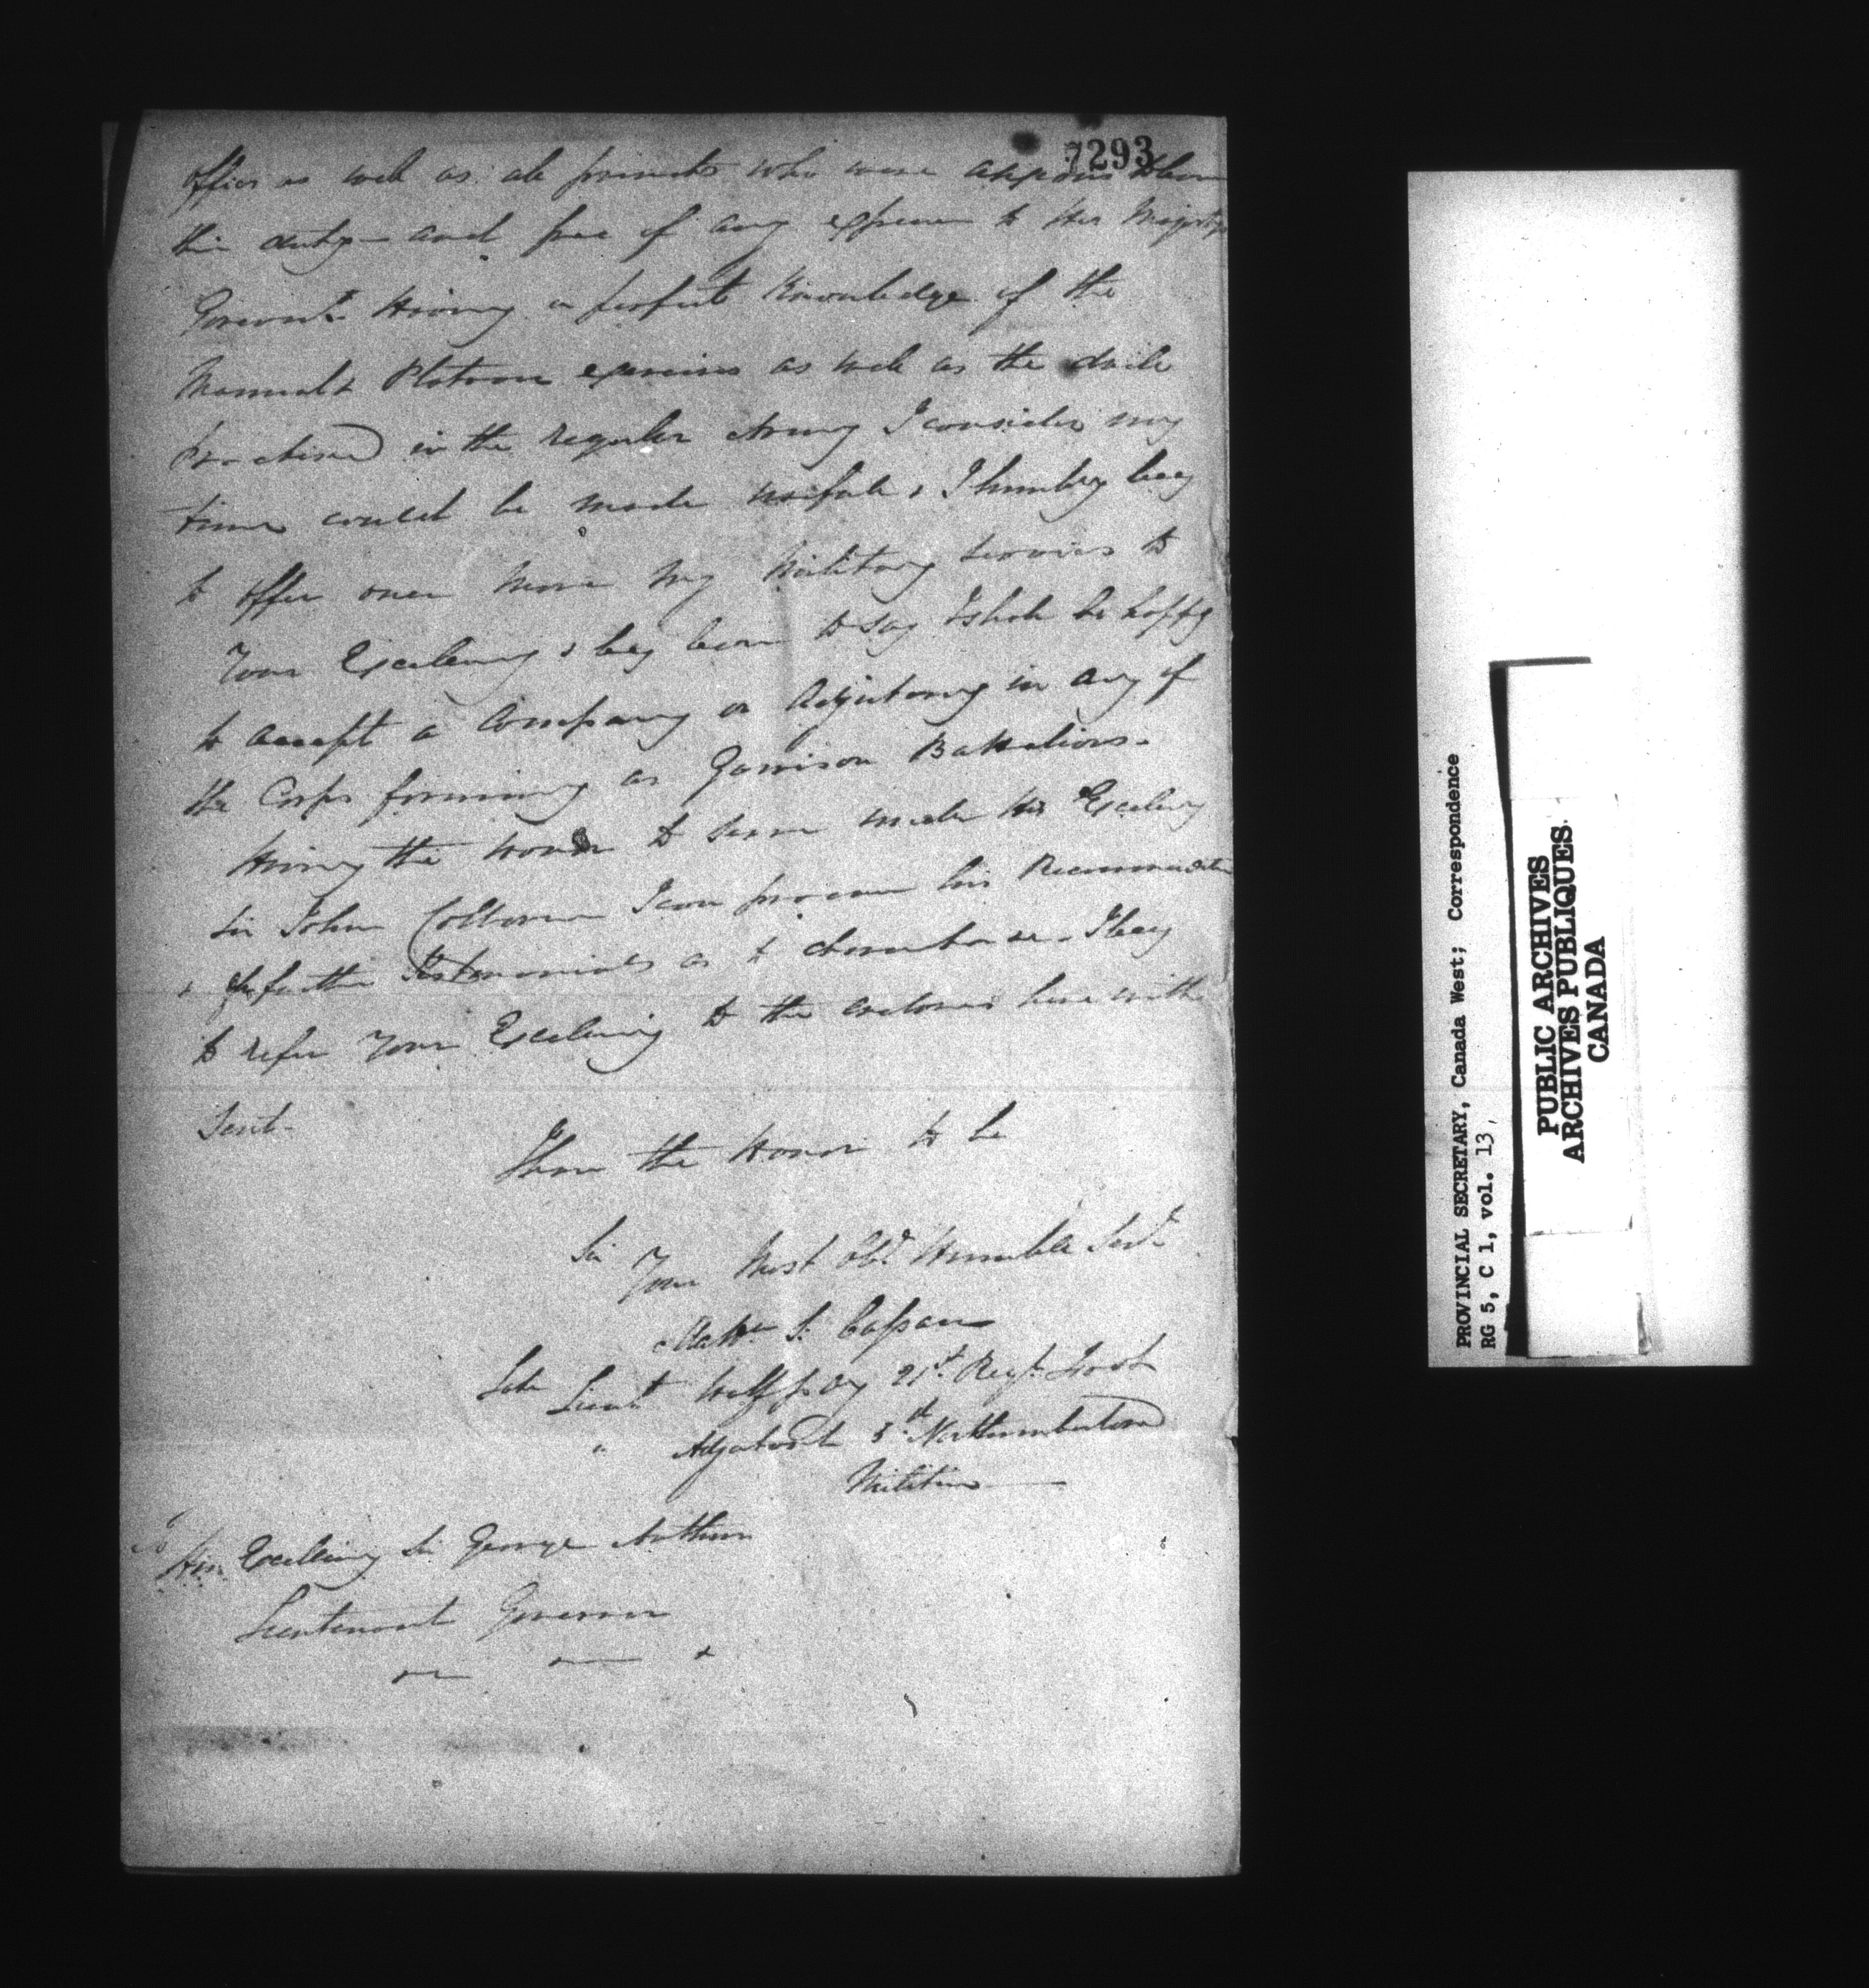 7293
officer as well as all privates who were anxious to learn
their duty - and free of any expense to Her Majestys
Governt. Having a perfect Knowledge of the
Manual & Platoon exercises as well as the drill
Practised in the regular Army I consider my
time could be made usefull, & I humbly beg
to offer once more my Military services to
Your Excellency & beg leave to say I shall be happy
to accept a Company or Adjutancy in any of
the Corps forming as Garrison Battalions -
Having the honor to serve under His Excellency
Sir John Colborne I can procure his Recommendation
& for further Testimonials as to character - I beg
to refer Your Excellency to the enclosed herewith
Sent -
I have the Honor to be
Sir Your Most Obt. Humble Servt.
Mattw. S. Cassan
Late Lieut. Half pay 21st Regt. Foot
" Adjutant 5th Northumberland
Militia
To
His Excellency Sir George Arthur
Lieutenant Governor
PROVINCIAL SECRETARY, Canada West; Correspondence
RG 5, C 1, vol. 13,
PUBLIC ARCHIVES
ARCHIVES PUBLIQUES
CANADA